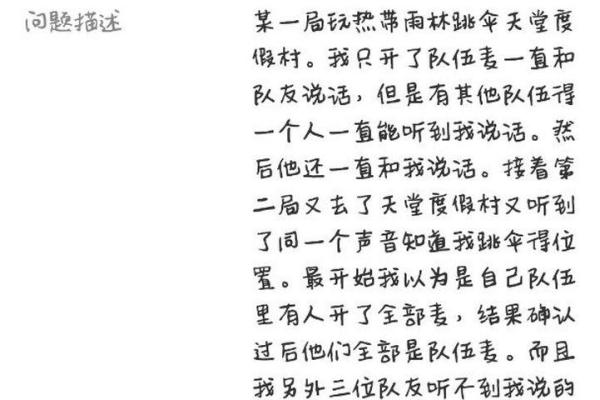 问题描述
某一局玩热带雨林跳伞天堂度
假村。我只开了队伍麦一直和
队友说话，但是有其他队伍得
一个人一直能听到我说话。然
后他还一直和我说话。接着第
二局又去了天堂度假村又听到
了同一个声音知道我跳伞得位
置。最开始我以为是自己队伍
里有人开了全部麦，结果确认
过后他们全部是队伍麦。而且
我另外三位队友听不到我说的